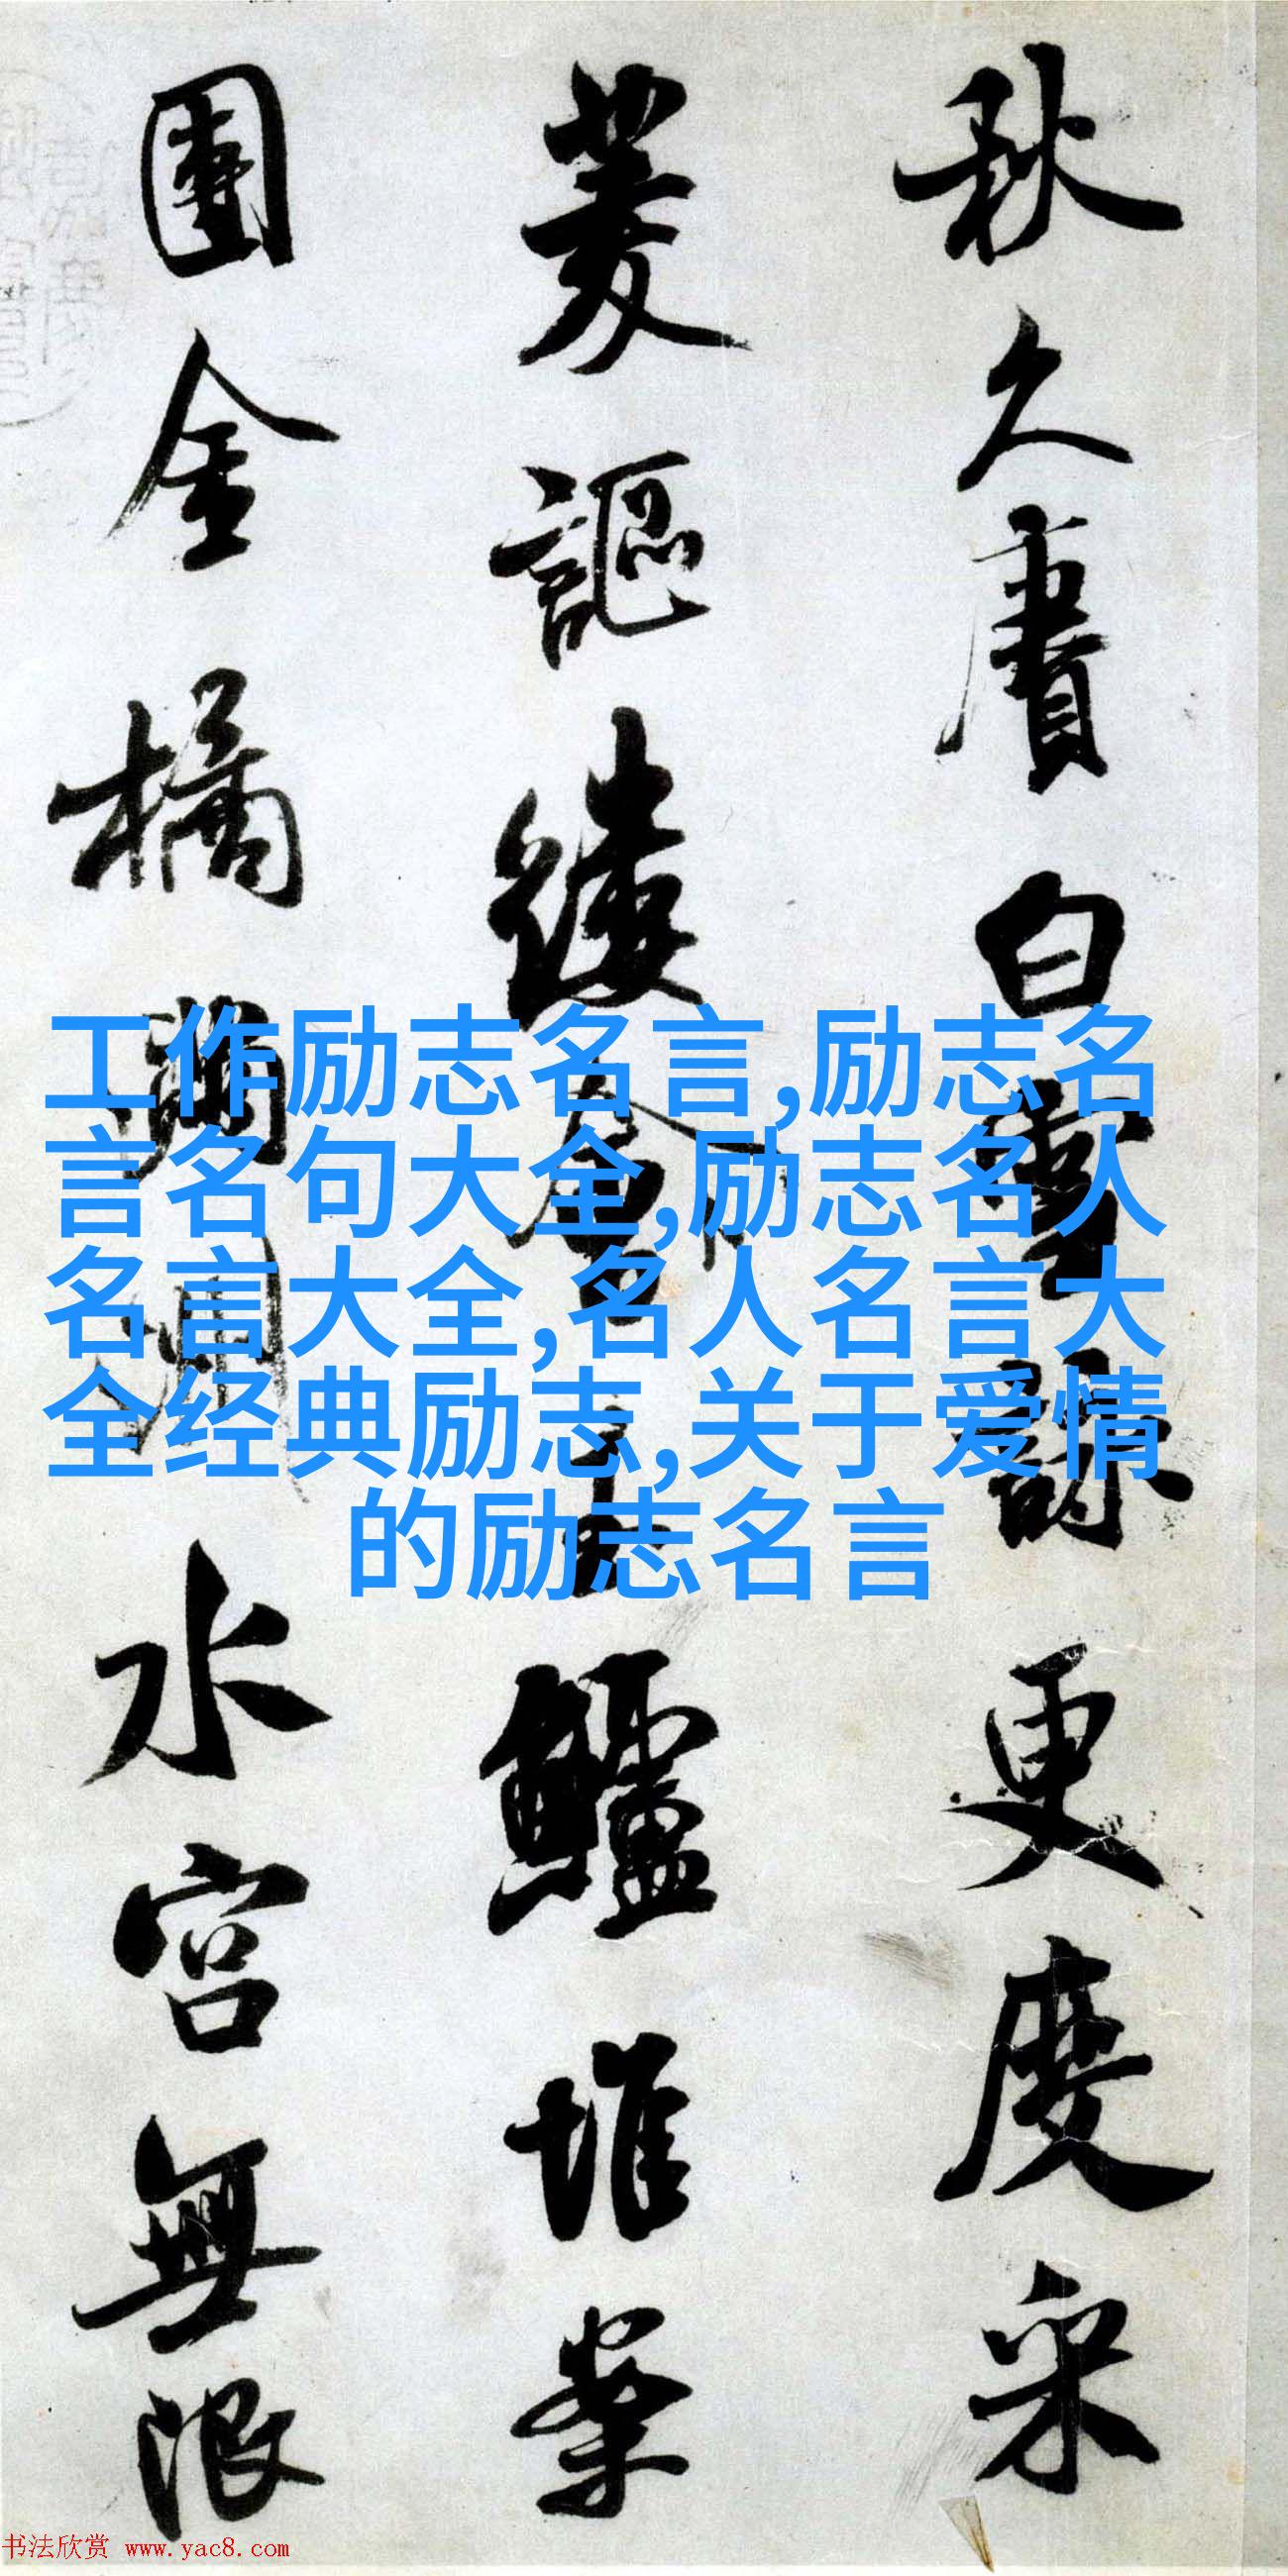 秋久賡白雪詠更度采
菱謳縷會玉鱸堆案
團金橘滿洲水宮無限
工作励志名言,励志名
言名句大全,励志名人
名言大全,名人名言大
全经典励志,关于爱情
的励志名言
书法欣赏 www.yac8.com